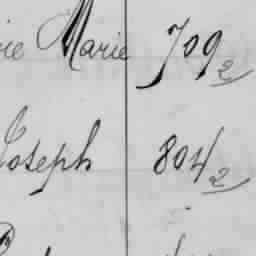 Marie 709 2
Joseph 804 2